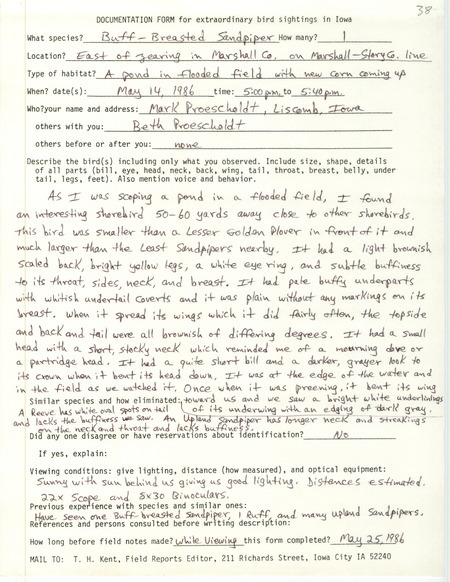 38
DOCUMENTATION FORM for extraordinary bird sightings in Iowa
What species? Buff-Breasted Sandpiper How many? 1
Location? East of Zearing in Marshall Co. on Marshall-Story Co. line
Type of habitat? A pond in flooded field with new corn coming up
When? date(s): May 14, 1986 time: 5:00 p.m. to 5:40 p.m.
Who? your name and address: Mark Proescholdt, Liscomb, Iowa
others with you: Beth Proescholdt
others before or after you: none
Describe the bird(s) including only what you observed. Include size, shape, details
of all parts (bill, eye, head, neck, back, wing, tail, throat, breast, belly, under
tail, legs, feet). Also mention voice and behavior.
As I was scoping a pond in a flooded field, I found
an interesting shorebird 50-60 yards away close to other shorebirds.
This bird was smaller than a Lesser Golden Plover in front of it and
much larger than the Least Sandpipers nearby. It had a light brownish
scaled back, bright yellow legs, a white eye ring, and subtle buffiness
to its throat, sides, neck, and breast. It had pale buffy underparts
with whitish undertail coverts and it was plain without any markings on its
breast. When it spread its wings which it did fairly often, the topside
and back and tail were all brownish of differing degrees. It had a small
head with a short, stocky neck which reminded me of a mourning dove or
a partridge head. It had a quite short bill and a darker, grayer look to
its crown when it bent its head down. It was at the edge of the water and
in the field as we watched it. Once when it was preening, it bent its wing
Similar species and how eliminated: toward us and we saw a bright white underlinings
A Reeve has white oval spots on tail ( of its underwing with an edging of dark gray.
and lacks the buffiness we saw. An Upland Sandpiper has longer neck and streakings
on the neck and throat and lacks buffiness.
Did any one disagree or have reservations about identification? No
If yes, explain:
Viewing conditions: give lighting, distance (how measured), and optical equipment:
Sunny with sun behind us giving us good lighting. Distances estimated.
22x Scope and 8x30 Binoculars.
Previous experience with species and similar ones:
Have seen one Buff-breasted Sandpiper, 1 Ruff, and many Upland Sandpipers.
References and persons consulted before writing description:
How long before field notes made? while viewing this form completed? May 25, 1986
MAIL TO: T. H. Kent, Field Reports Editor, 211 Richards Street, Iowa City IA 52240